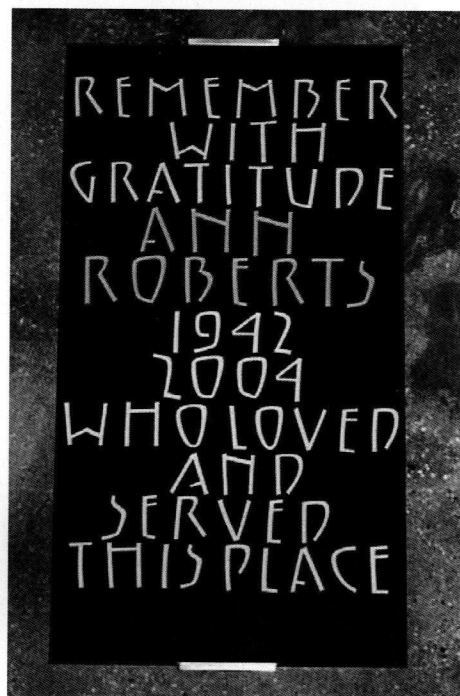 REMEMBER
WITH
GRATITUDE
ANN
ROBERTS
1942
2004
WHO LOVED
AND
SERVED
THIS PLACE